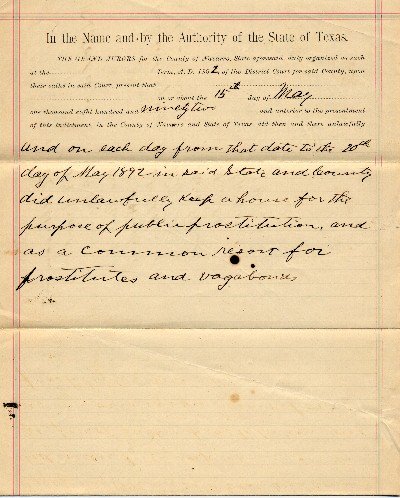 In the Name and by the Authority of the State of Texas.
THE GRAND JURORS for the County of Navarro, State aforesaid, duly organized as such
at the Term, A. D. 1892, of the District Court for said County, upon
their oaths in said Court, present that
on or about the 15th day of May
one thousand eight hundred and ninety two and anterior to the presentment
of this Indictment, in the County of Navarro and State of Texas, did then and there unlawfully
and on each day from that date to the 20th
day of May 1892 in said State and County
did unlawfully keep a house for the
purpose of public prostitution, and
as a common resort for
prostitutes and vagabonds